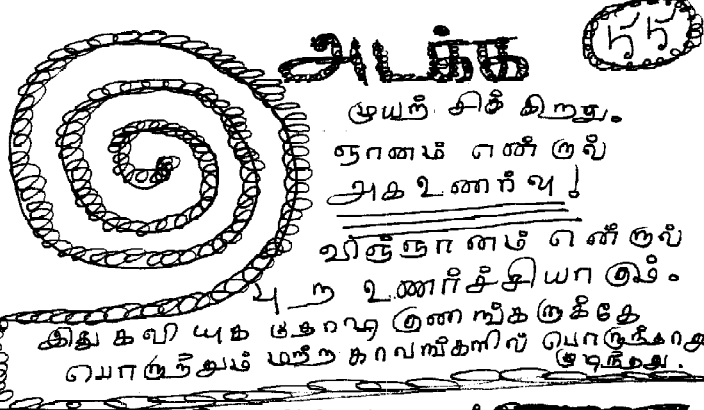 55
அடக்க
முயற் சிக் கிறது.
ஞானம் என்றால்
அக உணர்வு!
விஞ்ஞானம் என்றால்
புற உணர்ச்சியாகும்.
இது கலி யுக குணங்களுக்கே
பொருந்தும் மற்ற காலங்களில் பொருந்தாது